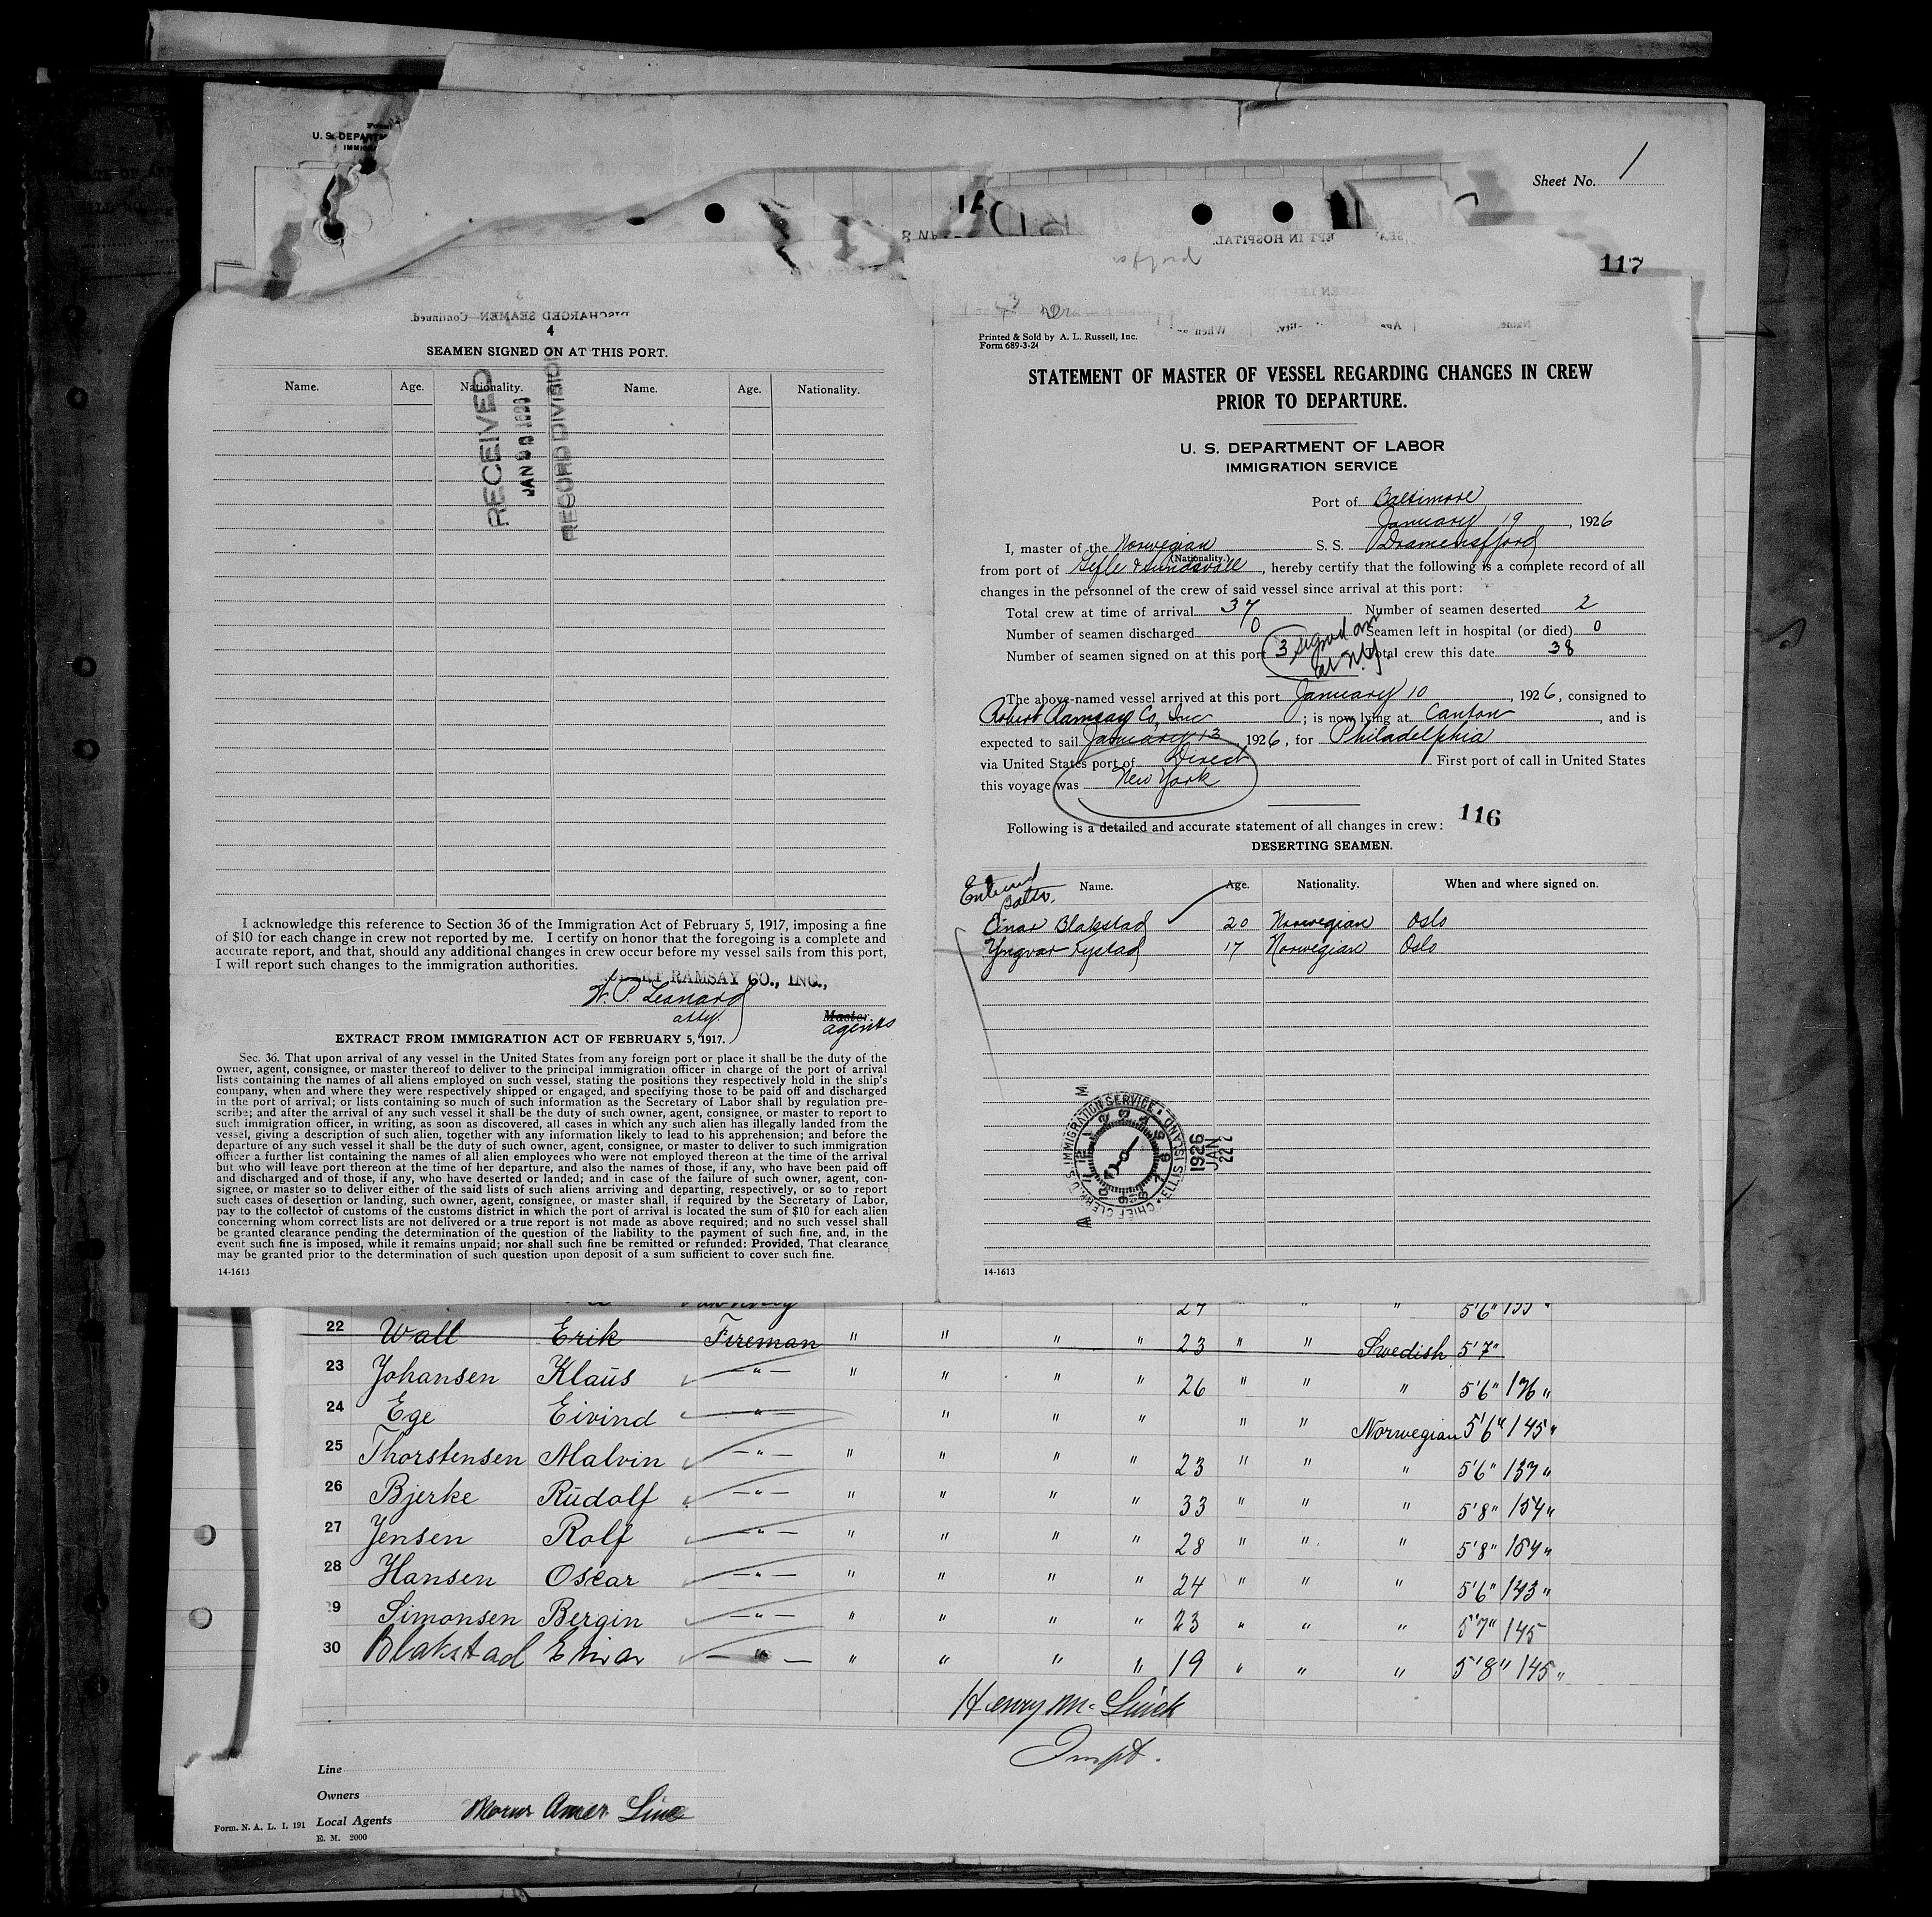 U. S. DEPARTM
Sheet No. 1
117
DISCHARGED SEAMEN—Continued.
4
SEAMEN SIGNED ON AT THIS PORT.
Name. Age. Nationality. Name. Age. Nationality.
RECEIVED
RECORD DIVISION
I acknowledge this reference to Section 36 of the Immigration Act of February 5, 1917, imposing a fine
of $10 for each change in crew not reported by me. I certify on honor that the foregoing is a complete and
accurate report, and that, should any additional changes in crew occur before my vessel sails from this port,
I will report such changes to the immigration authorities.
RAMSAY CO., INC.,
W. P. Leonard
atty.
Master.
agents
EXTRACT FROM IMMIGRATION ACT OF FEBRUARY 5, 1917.
Sec. 36. That upon arrival of any vessel in the United States from any foreign port or place it shall be the duty of the
owner, agent, consignee, or master thereof to deliver to the principal immigration officer in charge of the port of arrival
lists containing the names of all aliens employed on such vessel, stating the positions they respectively hold in the ship's
company, when and where they were respectively shipped or engaged, and specifying those to be paid off and discharged
in the port of arrival; or lists containing so much of such information as the Secretary of Labor shall by regulation pre-
scribe; and after the arrival of any such vessel it shall be the duty of such owner, agent, consignee, or master to report to
such immigration officer, in writing, as soon as discovered, all cases in which any such alien has illegally landed from the
vessel, giving a description of such alien, together with any information likely to lead to his apprehension; and before the
departure of any such vessel it shall be the duty of such owner, agent, consignee, or master to deliver to such immigration
officer a further list containing the names of all alien employees who were not employed thereon at the time of the arrival
but who will leave port thereon at the time of her departure, and also the names of those, if any, who have been paid off
and discharged and of those, if any, who have deserted or landed; and in case of the failure of such owner, agent, con-
signee, or master so to deliver either of the said lists of such aliens arriving and departing, respectively, or so to report
such cases of desertion or landing, such owner, agent, consignee, or master shall, if required by the Secretary of Labor,
pay to the collector of customs of the customs district in which the port of arrival is located the sum of $10 for each alien
concerning whom correct lists are not delivered or a true report is not made as above required; and no such vessel shall
be granted clearance pending the determination of the question of the liability to the payment of such fine, and, in the
event such fine is imposed, while it remains unpaid; nor shall such fine be remitted or refunded: Provided, That clearance
may be granted prior to the determination of such question upon deposit of a sum sufficient to cover such fine.
14-1613
Printed & Sold by A. L. Russell, Inc.
Form 689-3-24
STATEMENT OF MASTER OF VESSEL REGARDING CHANGES IN CREW
PRIOR TO DEPARTURE.
U. S. DEPARTMENT OF LABOR
IMMIGRATION SERVICE
Port of Baltimore
January 19, 1926
I, master of the Norwegian S. S. Dramensfjord
(Nationality.)
from port of Gefle & Sundsvall, hereby certify that the following is a complete record of all
changes in the personnel of the crew of said vessel since arrival at this port:
Total crew at time of arrival 37 Number of seamen deserted 2
Number of seamen discharged 0 Seamen left in hospital (or died) 0
Number of seamen signed on at this port 3 signed on at N.Y. Total crew this date 38
The above-named vessel arrived at this port January 10, 1926, consigned to
Robert Ramsay Co, Inc; is now lying at Canton, and is
expected to sail January 13, 1926, for Philadelphia
via United States port of Direct First port of call in United States
this voyage was New York
Following is a detailed and accurate statement of all changes in crew: 116
DESERTING SEAMEN.
Entered
Balto.
Name. Age. Nationality. When and where signed on.
Einar Blakstad 20 Norwegian Oslo
Yngvar Fystad 17 Norwegian Oslo
U.S. IMMIGRATION SERVICE ELLIS ISLAND CHIEF CLERK
1926
JAN
22
14-1613
27 " " " 5'6" 155 "
22 Wall Erik Fireman " " " " 23 " " Swedish 5'7"
23 Johansen Klaus -"- " " " " 26 " " " 5'6" 176 "
24 Ege Eivind -"- " " " " " Norwegian 5'6" 145 "
25 Thorstensen Malvin -"- " " " " 23 " " " 5'6" 137 "
26 Bjerke Rudolf -"- " " " " 33 " " " 5'8" 154 "
27 Jensen Rolf -"- " " " " 28 " " " 5'8" 154 "
28 Hansen Oscar -"- " " " " 24 " " " 5'6" 143 "
29 Simonsen Bergin -"- " " " " 23 " " " 5'7" 145
30 Blakstad Einar -"- " " " " 19 " " " 5'8" 145 "
Henry Mc
Inspt.
Line
Owners
Local Agents Norw Amer Line
Form. N. A. L. I. 191
E. M. 2000